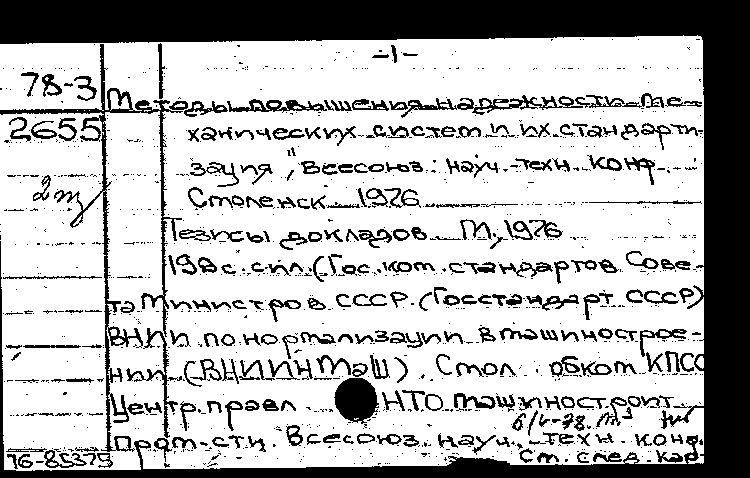 -1-
78-3
Методы повышения надежности ме-
2655
ханических систем и их стандарти-
зация", Всесоюз. науч.-техн. конф.
2 т
Смоленск 1976
Тезисы докладов. М., 1976
198 с. с ил. (Гос. ком. стандартов Сове-
та Министров СССР (Госстандарт СССР)
ВНИИ по нормализации в машинострое-
нии (ВНИИНМаШ). Смол. обком КПСС
Центр. правл. НТО машиностроит.
6/V-78.
Пром-сти. Всесоюз. науч.-техн. конф.
76-85375
См. след. кар-